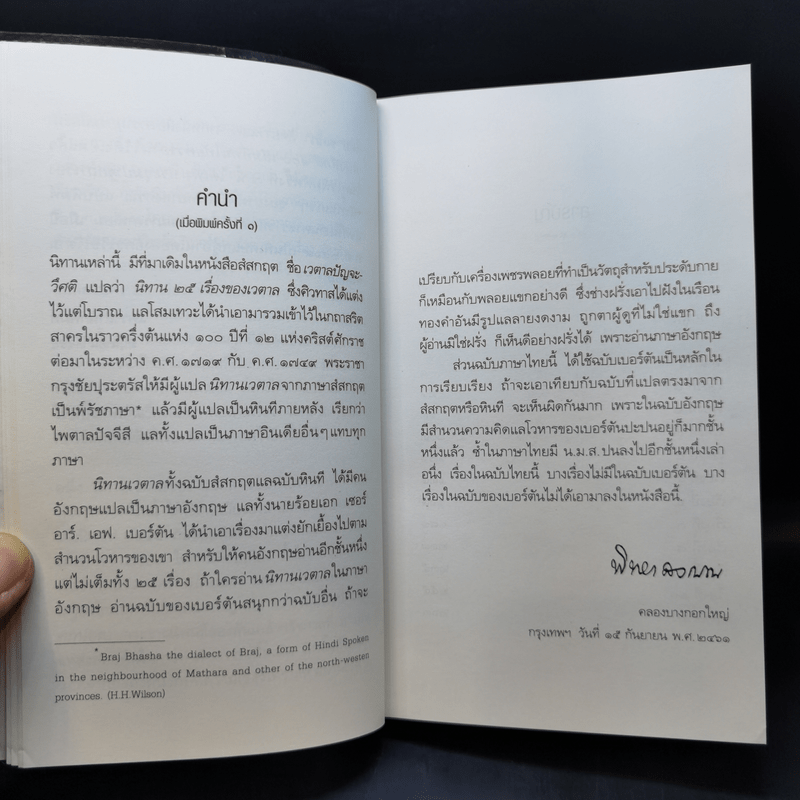 คำนำ
(เมื่อพิมพ์ครั้งที่ ๑)
นิทานเหล่านี้ มีที่มาเดิมในหนังสือสํสกฤต ชื่อเวตาลปัญจะ-
วึศติ แปลว่า นิทาน ๒๕ เรื่องของเวตาล ซึ่งศิวทาสได้แต่ง
ไว้แต่โบราณ แลโสมเทวะได้นำเอามารวมเข้าไว้ในกถาสริต
สาครในราวครึ่งต้นแห่ง ๑๐๐ ปีที่ ๑๒ แห่งคริสต์ศักราช
ต่อมาในระหว่าง ค.ศ.๑๗๑๙ กับ ค.ศ.๑๗๔๙ พระราชา
กรุงชัยปุระตรัสให้มีผู้แปล นิทานเวตาลจากภาษาสํสกฤต
เป็นพํรัชภาษา* แล้วมีผู้แปลเป็นหินทีภายหลัง เรียกว่า
ไพตาลปัจจีสี แลทั้งแปลเป็นภาษาอินเดียอื่นๆ แทบทุก
ภาษา
นิทานเวตาลทั้งฉบับสํสกฤตแลฉบับหินที ได้มีคน
อังกฤษแปลเป็นภาษาอังกฤษ แลทั้งนายร้อยเอก เซอร์
อาร์. เอฟ. เบอร์ตัน ได้นำเอาเรื่องมาแต่งยักเยื้องไปตาม
สำนวนโวหารของเขา สำหรับให้คนอังกฤษอ่านอีกชั้นหนึ่ง
แต่ไม่เต็มทั้ง ๒๕ เรื่อง ถ้าใครอ่าน นิทานเวตาลในภาษา
อังกฤษ อ่านฉบับของเบอร์ตันสนุกกว่าฉบับอื่น ถ้าจะ
* Braj Bhasha the dialect of Braj, a form of Hindi Spoken
in the neighbourhood of Mathara and other of the north-westen
provinces. (H.H.Wilson)
เปรียบกับเครื่องเพชรพลอยที่ทำเป็นวัตถุสำหรับประดับกาย
ก็เหมือนกับพลอยแขกอย่างดี ซึ่งช่างฝรั่งเอาไปฝังในเรือน
ทองคำอันมีรูปแลลายงดงาม ถูกตาผู้ดูที่ไม่ใช่แขก ถึง
ผู้อ่านมิใช่ฝรั่ง ก็เห็นดีอย่างฝรั่งได้ เพราะอ่านภาษาอังกฤษ
ส่วนฉบับภาษาไทยนี้ ได้ใช้ฉบับเบอร์ตันเป็นหลักใน
การเรียบเรียง ถ้าจะเอาเทียบกับฉบับที่แปลตรงมาจาก
สํสกฤตหรือหินที จะเห็นผิดกันมาก เพราะในฉบับอังกฤษ
มีสำนวนความคิดแลโวหารของเบอร์ตันปะปนอยู่ก็มากชั้น
หนึ่งแล้ว ซ้ำในภาษาไทยมี น.ม.ส.ปนลงไปอีกชั้นหนึ่งเล่า
อนึ่ง เรื่องในฉบับไทยนี้ บางเรื่องไม่มีในฉบับเบอร์ตัน บาง
เรื่องในฉบับของเบอร์ตันไม่ได้เอามาลงในหนังสือนี้.
คลองบางกอกใหญ่
กรุงเทพฯ วันที่ ๑๕ กันยายน พ.ศ.๒๔๖๑